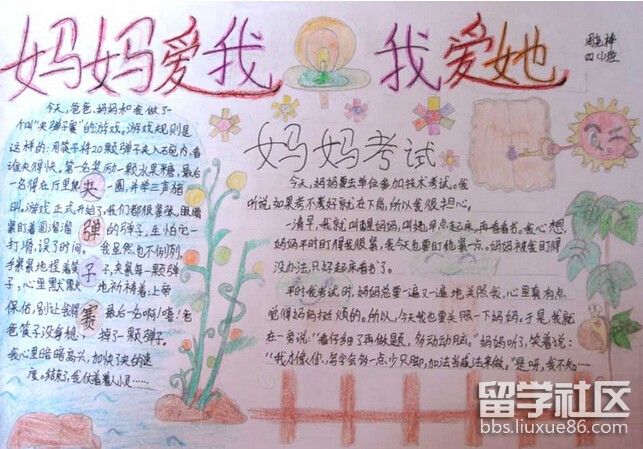 妈妈爱我 我爱她
周艳婵
四小燕
今天,爸爸、妈妈和我做了一
个叫"夹弹子赛"的游戏。游戏规则是
这样的:用筷子将20颗弹子夹入石碗内,看
谁夹得快。第一名奖励一颗水果糖,最后
一名得在厅里爬一圈,并学三声猪
叫。游戏正式开始了,我们都很紧张,眼睛
紧盯着圆溜溜的弹子,生怕它一
打滑,误了时间。我虽然也不例外,
手紧紧地捏着筷子,夹紧每一颗弹
子,心里默默地祈祷着:上帝
保佑,别让我得最后一名啊!嘻!爸
爸筷子没拿稳,掉了一颗弹子。
我心里暗暗高兴,加快了夹的速
度。结束了,我伏着
夹
弹
子
赛
妈妈考试
今天,妈妈要去单位参加技术考试。我
听说,如果考不好就就在下岗,所以我很担心。
一清早,我就叫醒妈妈,叫她早点起床,再看看书。我心想,
妈妈平时盯得我很紧,我今天也要盯她紧一点。妈妈被我盯得
没办法,只好起床看书了。
平时我考试时,妈妈总要一遍又一遍地关照我,心里真有点
觉得妈妈挺烦的。所以,今天我也要关照一下妈妈。于是,我就
在一旁说:"看仔细了再做题,多动动脑。"妈妈听了,笑着说:
"我才像你,写字会多一点少只脚,加法当减法来做。"是呀,我不
留学社区
bbs.liuxue86.com